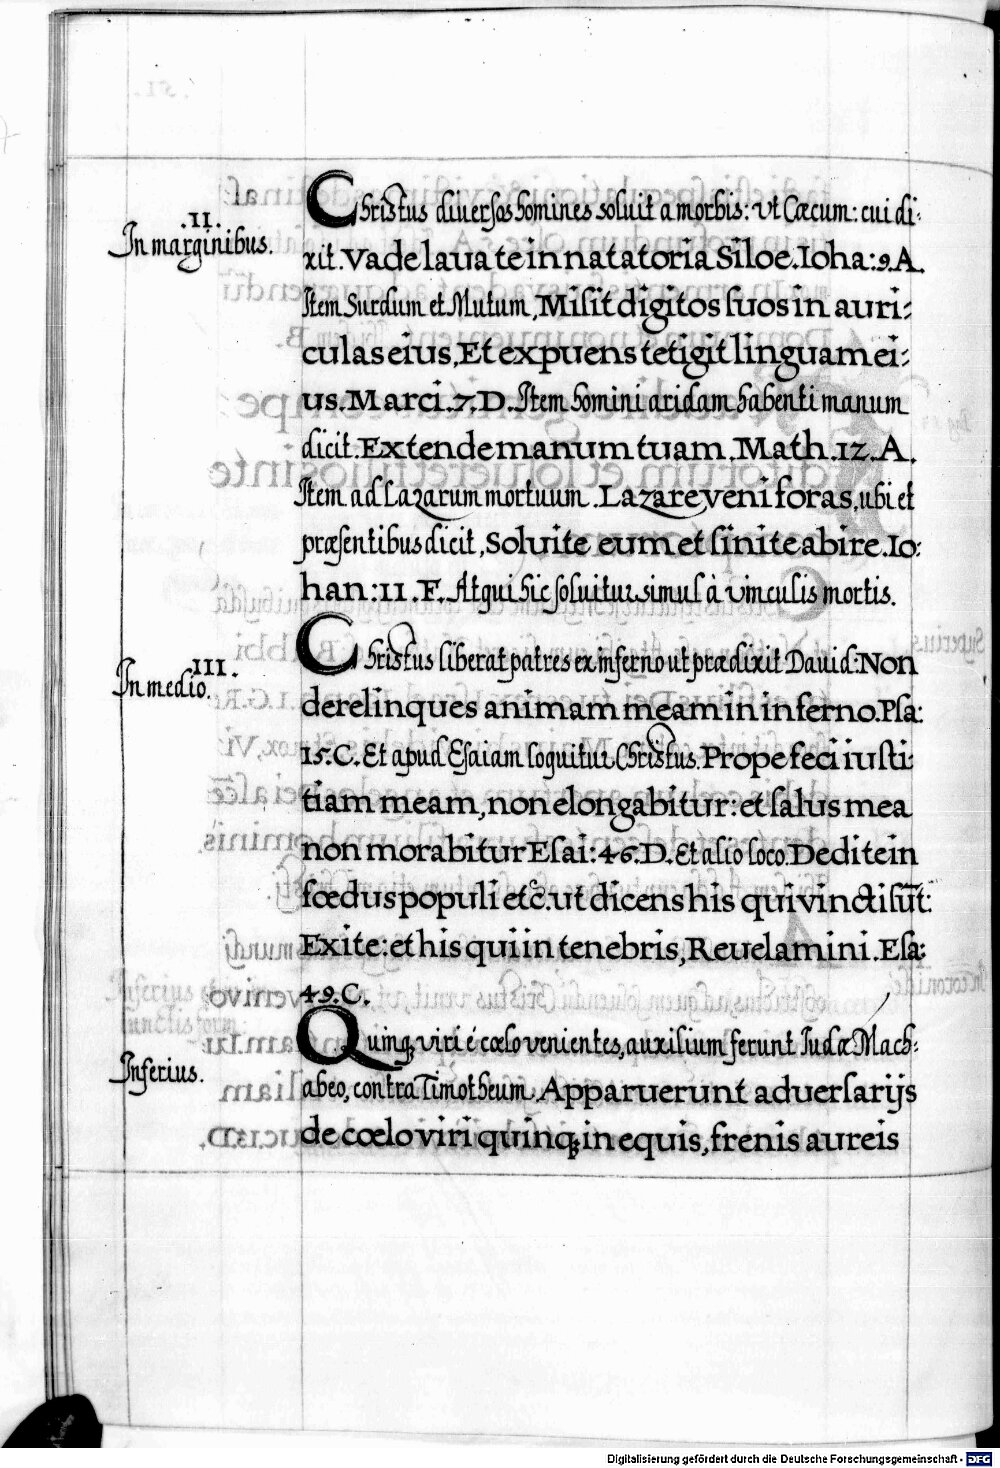 .II.
In marginibus.
Christus diuersos homines soluit a morbis: Vt Cæcum: cui di-
xit. Vade lava te in natatoria Siloe. Ioha: 9. A.
Item Surdum et Mutum, Misit digitos suos in auri-
culas eius, Et expuens tetigit linguam ei-
us. Marci. 7. D. Item homini aridam habenti manum
dicit: Extende manum tuam. Math. 12. A.
Item ad Lazarum mortuum. Lazare veni foras, ubi et
præsentibus dicit, Solvite eum et sinite abire. Io-
han: 11. F. Atqui hic soluitur simul à vinculis mortis.
.III.
In medio.
Christus liberat patres ex inferno ut prædixit Dauid: Non
derelinques animam meam in inferno. Psa:
15. C. Et apud Esaiam loquitur Christus. Prope feci iusti-
tiam meam, non elongabitur: et salus mea
non morabitur Esai: 46. D. Et alio loco. Dedi te in
fœdus populi etc. ut dicens his qui vincti sūt:
Exite: et his qui in tenebris, Reuelamini. Esa:
49. C.
Inferius.
Quinq; viri è cœlo venientes, auxilium ferunt Iudæ Mach-
abeo, contra Timotheum. Apparuerunt adversarijs
de cœlo viri quinq; in equis, frenis aureis
Digitalisierung gefördert durch die Deutsche Forschungsgemeinschaft - DFG